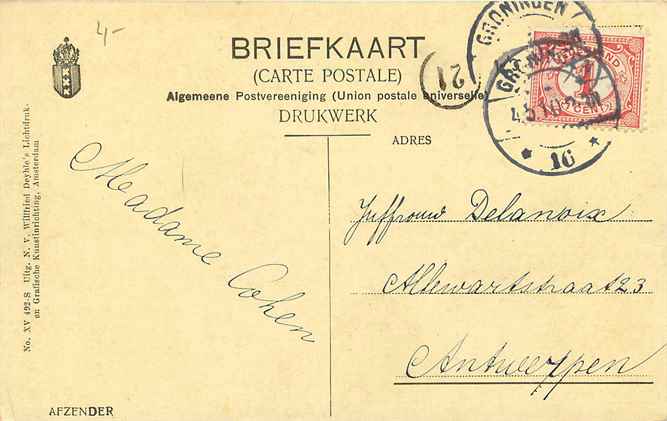 4,-
BRIEFKAART
(CARTE POSTALE)
Algemeene Postvereeniging (Union postale universelle)
DRUKWERK
21
GRONINGEN
4.5.10
16
1
CENT
ADRES
Madame Cohen
Juffrouw Delanoix
Allewartstraat 23
Antwerpen
No. XV 492-S Uitg. N. V. Willfried Deyhle's Lichtdruk-
en Grafische Kunstinrichting, Amsterdam
AFZENDER